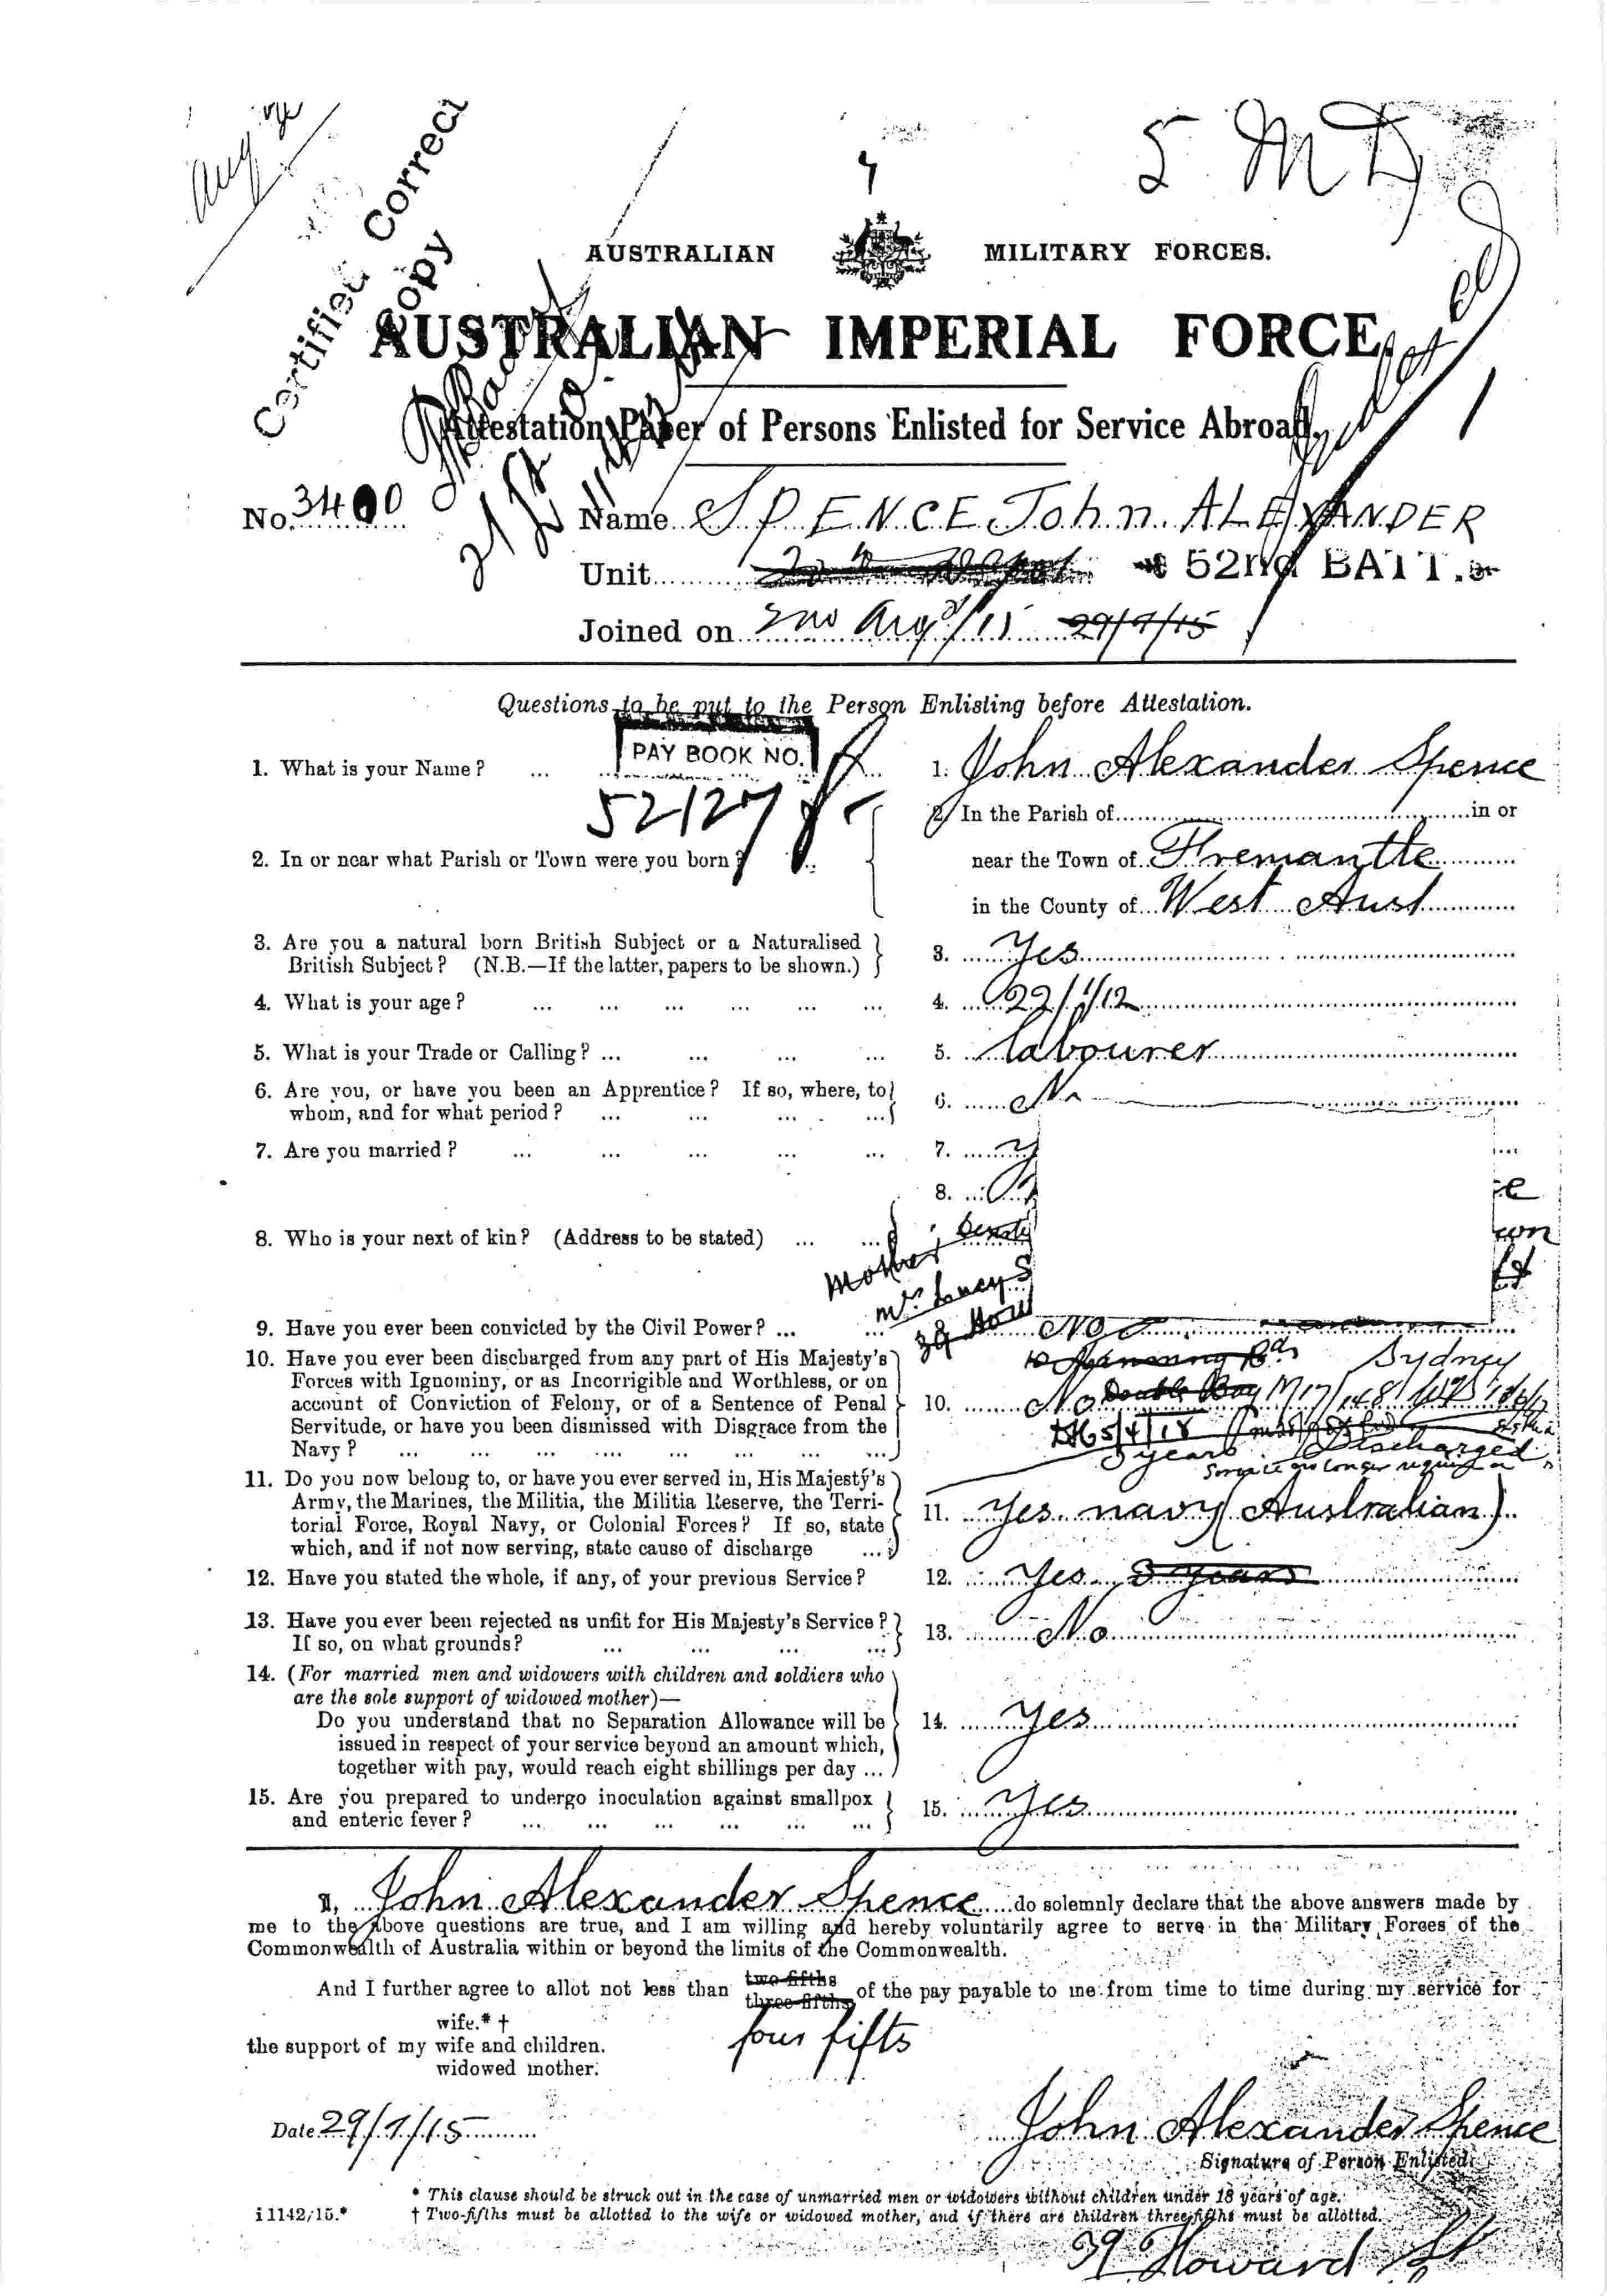 Aug
Certified Correct
Copy
5 MD
AUSTRALIAN MILITARY FORCES.
AUSTRALIAN IMPERIAL FORCE.
Attestation Paper of Persons Enlisted for Service Abroad.
No. 3400 Name SPENCE John ALEXANDER
Unit 52nd BATT.
Joined on 2nd Aug /15 29/7/15
Questions to be put to the Person Enlisting before Attestation.
PAY BOOK NO.
52127
1. What is your Name? ... 1. John Alexander Spence
2. In or near what Parish or Town were you born? 2. In the Parish of in or
near the Town of Fremantle
in the County of West Aust
3. Are you a natural born British Subject or a Naturalised
British Subject? (N.B.—If the latter, papers to be shown.) 3. Yes
4. What is your age? ... ... ... ... ... ... 4. 22 /12
5. What is your Trade or Calling? ... ... ... ... 5. labourer
6. Are you, or have you been an Apprentice? If so, where, to
whom, and for what period? ... ... ... ... 6. No
7. Are you married? ... ... ... ... ... 7. y
8. Who is your next of kin? (Address to be stated) ... ... 8.
Mother
Mrs Lucy S
39 How
9. Have you ever been convicted by the Civil Power? ... ... No
10. Have you ever been discharged from any part of His Majesty's
Forces with Ignominy, or as Incorrigible and Worthless, or on
account of Conviction of Felony, or of a Sentence of Penal
Servitude, or have you been dismissed with Disgrace from the
Navy? ... ... ... ... ... ... ... 10. No
Sydney
Double Bay
5/4/18
3 years Discharged
Service no longer required
11. Do you now belong to, or have you ever served in, His Majesty's
Army, the Marines, the Militia, the Militia Reserve, the Terri-
torial Force, Royal Navy, or Colonial Forces? If so, state
which, and if not now serving, state cause of discharge ... 11. Yes. navy (Australian)
12. Have you stated the whole, if any, of your previous Service? 12. Yes 3 years
13. Have you ever been rejected as unfit for His Majesty's Service?
If so, on what grounds? ... ... ... ... 13. No
14. (For married men and widowers with children and soldiers who
are the sole support of widowed mother)—
Do you understand that no Separation Allowance will be
issued in respect of your service beyond an amount which,
together with pay, would reach eight shillings per day ... 14. Yes
15. Are you prepared to undergo inoculation against smallpox
and enteric fever? ... ... ... ... ... ... 15. Yes
I, John Alexander Spence do solemnly declare that the above answers made by
me to the above questions are true, and I am willing and hereby voluntarily agree to serve in the Military Forces of the
Commonwealth of Australia within or beyond the limits of the Commonwealth.
And I further agree to allot not less than two-fifths three-fifths of the pay payable to me from time to time during my service for
four fifts
wife.* †
the support of my wife and children.
widowed mother.
Date 29/7/15
John Alexander Spence
Signature of Person Enlisted.
* This clause should be struck out in the case of unmarried men or widowers without children under 18 years of age.
i 1142/15.* † Two-fifths must be allotted to the wife or widowed mother, and if there are children three-fifths must be allotted.
39 Howard St